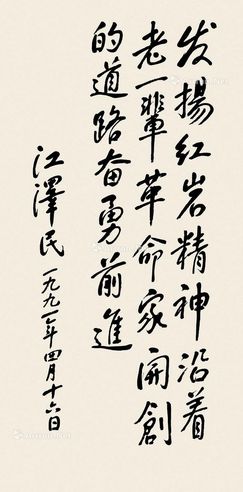 发揚红岩精神沿着
老一輩革命家開創
的道路奋勇前進
江澤民
一九九一年四月十六日